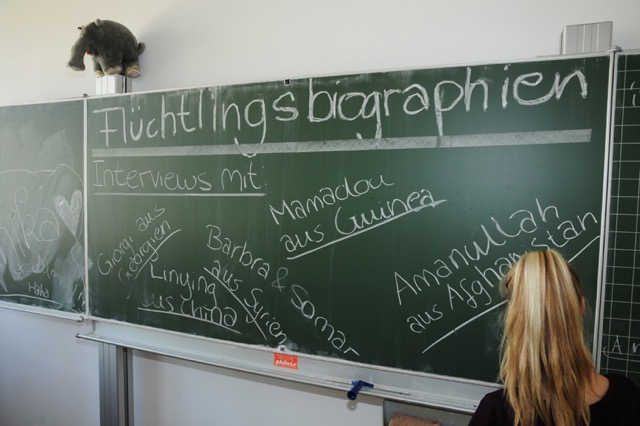 Flüchtlingsbiographien
Interviews mit:
Giorgi aus
Georgien
Linying
aus China
Barbra & Somar
aus Syrien
Mamadou
aus Guinea
Amanullah
aus Afghanistan